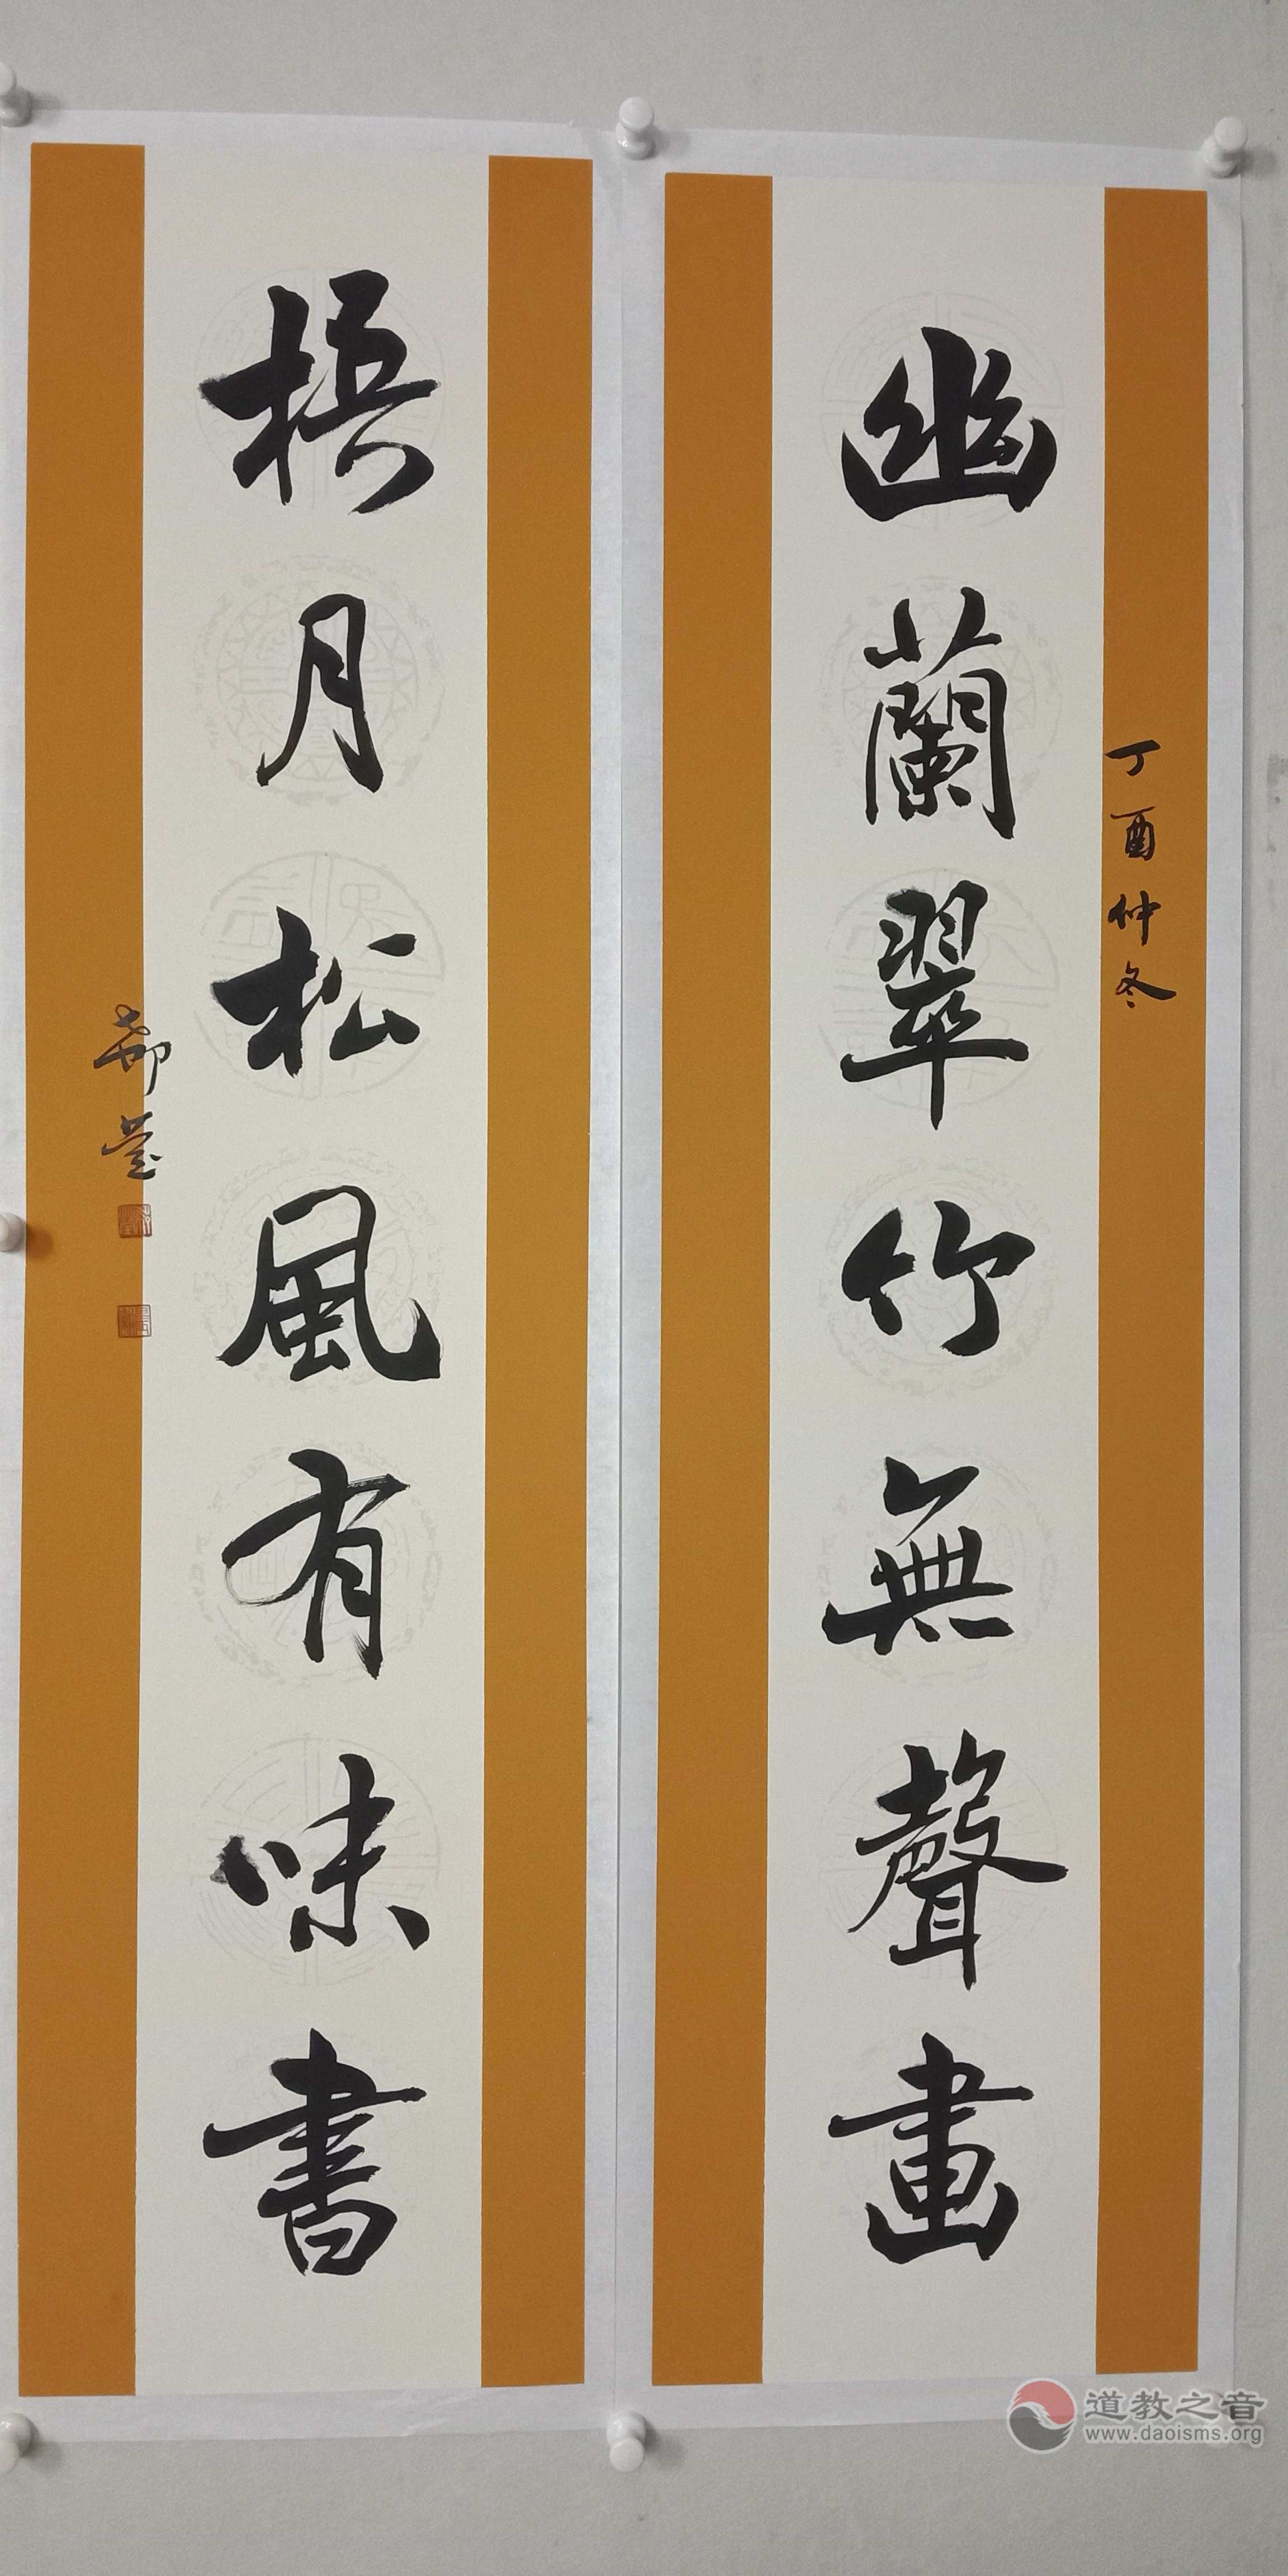 丁酉仲冬
幽蘭翠竹無聲畫
梧月松風有味書
道教之音
www.daoisms.org